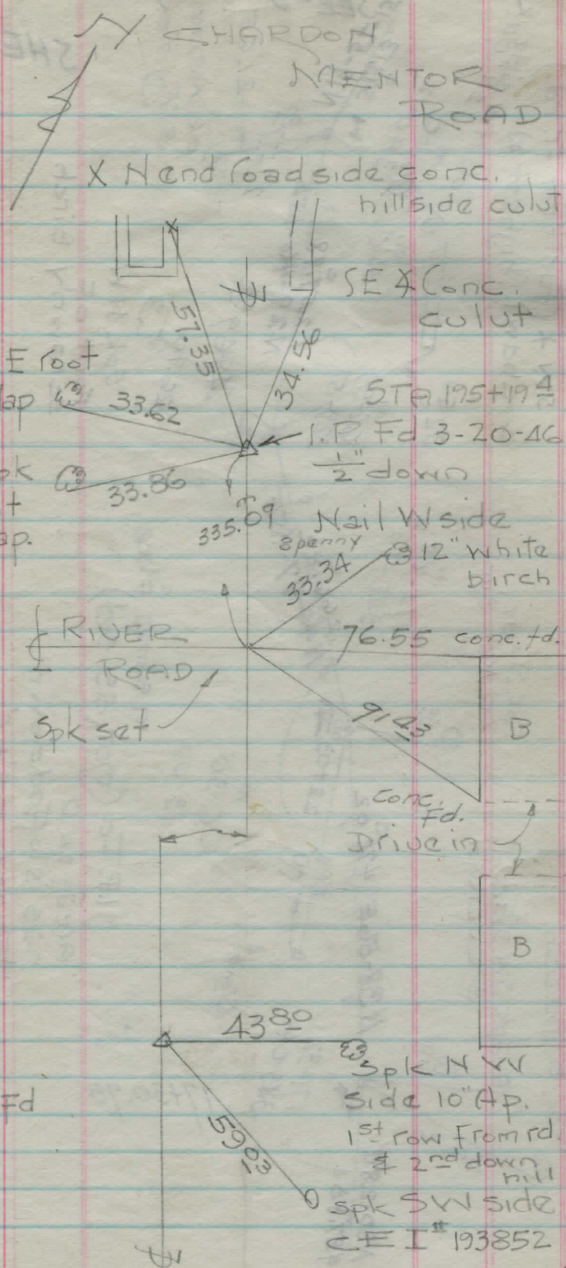 CHARDON
MENTOR
ROAD
X N end roadside conc.
hillside culvt
SE ∡ Conc.
culvt
57.35
34.56
E root
ap
33.62
STA 195+19 4
I.P. Fd 3-20-46
1/2" down
pk
t
ap.
33.86
335.09
Nail W side
8 penny
12" white
birch
33.34
RIVER
ROAD
76.55 conc. fd.
Spk set
91.43
B
conc.
Fd.
Drive in
B
43 80
Spk N W
side 10" Ap.
1st row from rd.
& 2nd down
hill
Fd
59.03
spk SW side
CEI # 193852